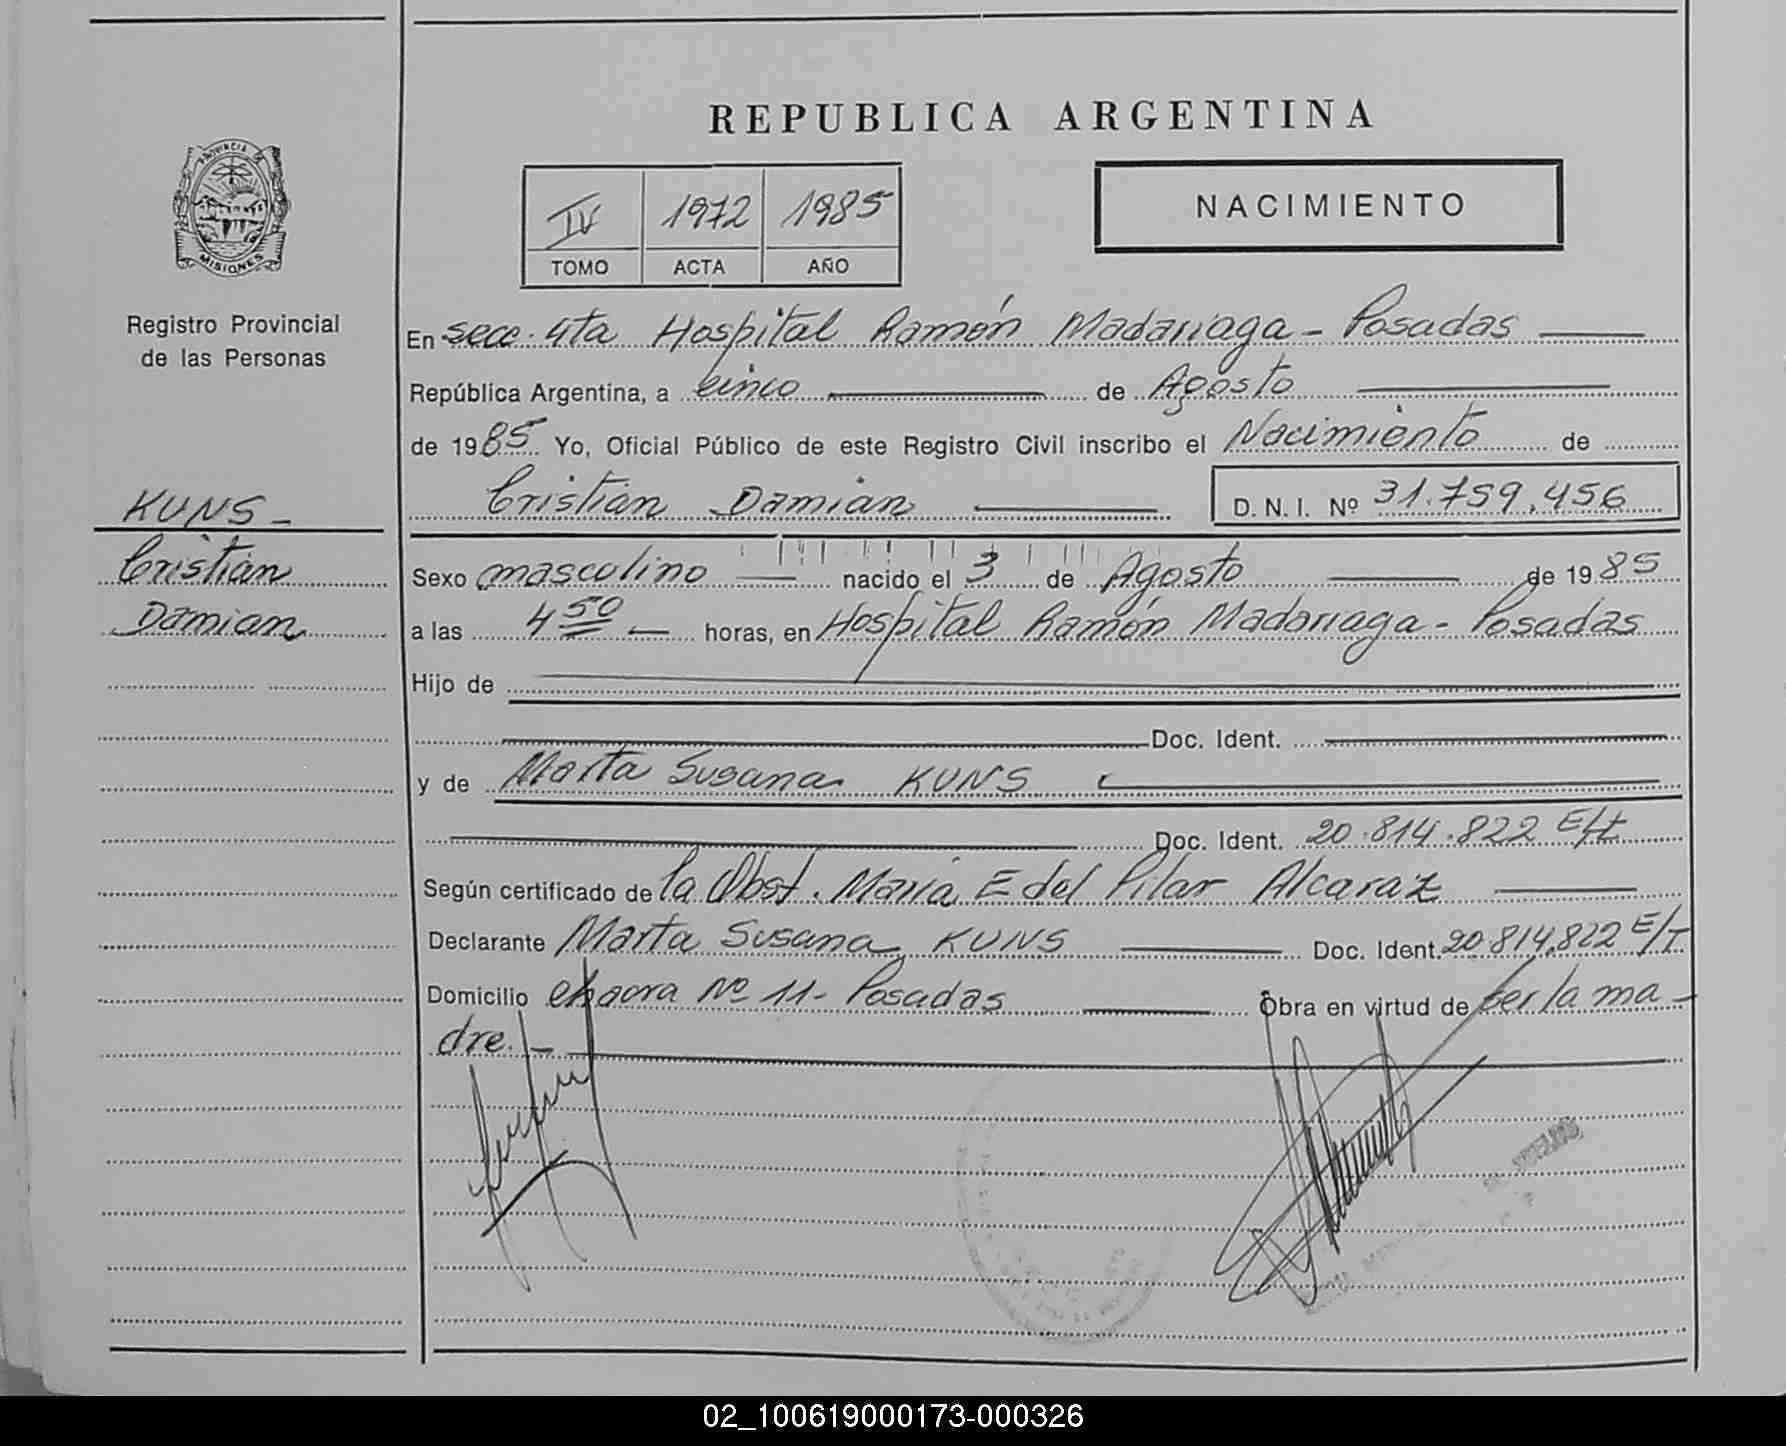 REPUBLICA ARGENTINA
PROVINCIA DE
MISIONES
IV 1972 1985
TOMO ACTA AÑO
NACIMIENTO
Registro Provincial
de las Personas
En secc. 4ta Hospital Ramón Madariaga - Posadas
República Argentina, a cinco de Agosto
de 1985 Yo, Oficial Público de este Registro Civil inscribo el Nacimiento de
Cristian Damian D.N.I. Nº 31.759.456
KUNS -
Cristian
Damian
Sexo masculino nacido el 3 de Agosto de 1985
a las 4 50 horas, en Hospital Ramón Madariaga - Posadas
Hijo de
Doc. Ident.
y de Marta Susana KUNS
Doc. Ident. 20.814.822 E/t
Según certificado de la Obst. Maria E del Pilar Alcaraz
Declarante Marta Susana KUNS Doc. Ident. 20.814.822 E/T
Domicilio chacra Nº 11 - Posadas Obra en virtud de ser la ma-
dre. -
02_100619000173-000326